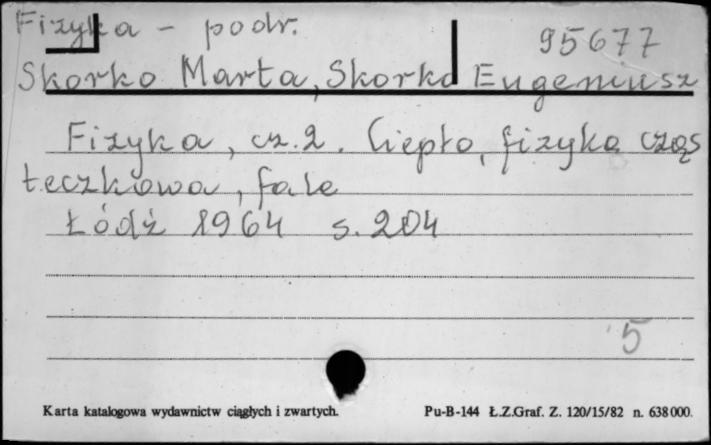 Fizyka - podr.
95677
Skorko Marta, Skorko Eugeniusz
Fizyka, cz. 2. Ciepło, fizyka cząs
teczkowa, fale
Łódź 1964 s. 204
5
Karta katalogowa wydawnictw ciągłych i zwartych. Pu-B-144 Ł.Z.Graf. Z. 120/15/82 n. 638000.